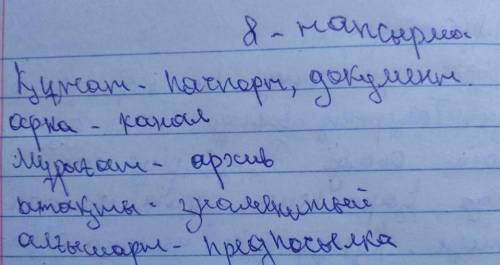 8 - тапсырма
Құжат - паспорт, документ.
арна - канал
Мұрағат - архив
атақты - знаменитый
алғышарт - предпосылка